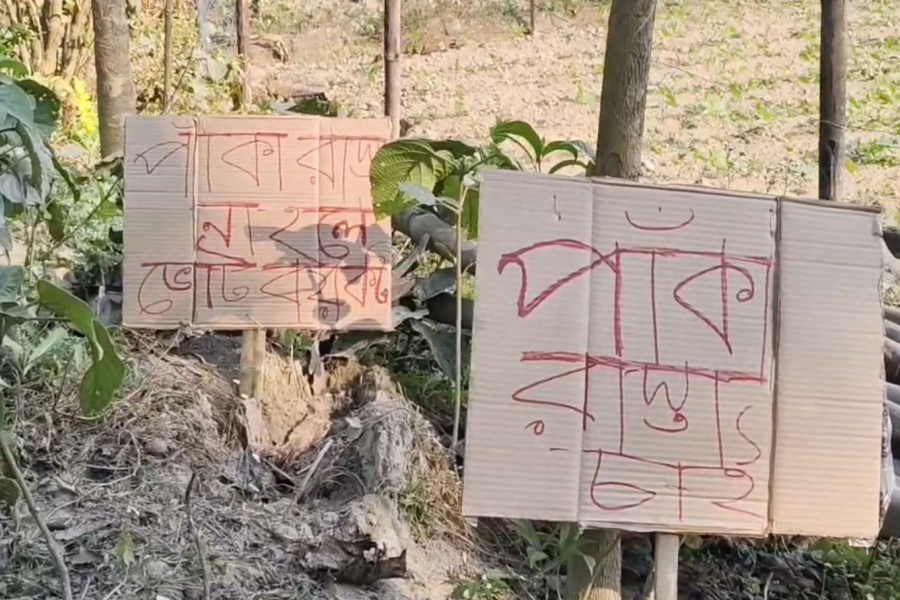 পাকা রাস্তা
না হলে
ভোট বয়কট
পাকা
রাস্তা
চাই